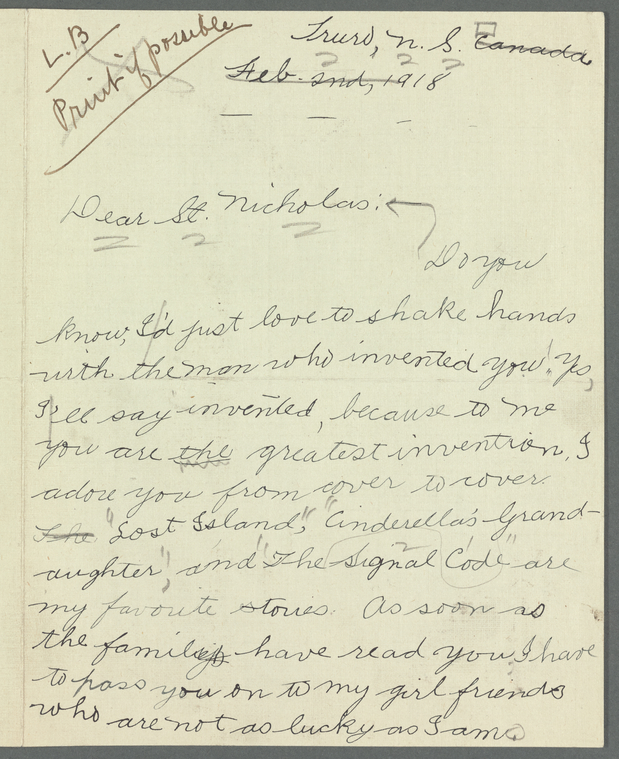 L.B
Print if possible
Truro, N. S. Canada
Feb. 2nd, 1918
Dear St. Nicholas:
Do you
know, I'd just love to shake hands
with the man who invented you! Yes,
I'll say invented, because to me
you are the greatest invention. I
adore you from cover to cover.
The "Lost Island," "Cinderella's Grand-
aughter", and "The Signal Code" are
my favorite stories. As soon as
the families have read you I have
to pass you on to my girl friends
who are not as lucky as I am.